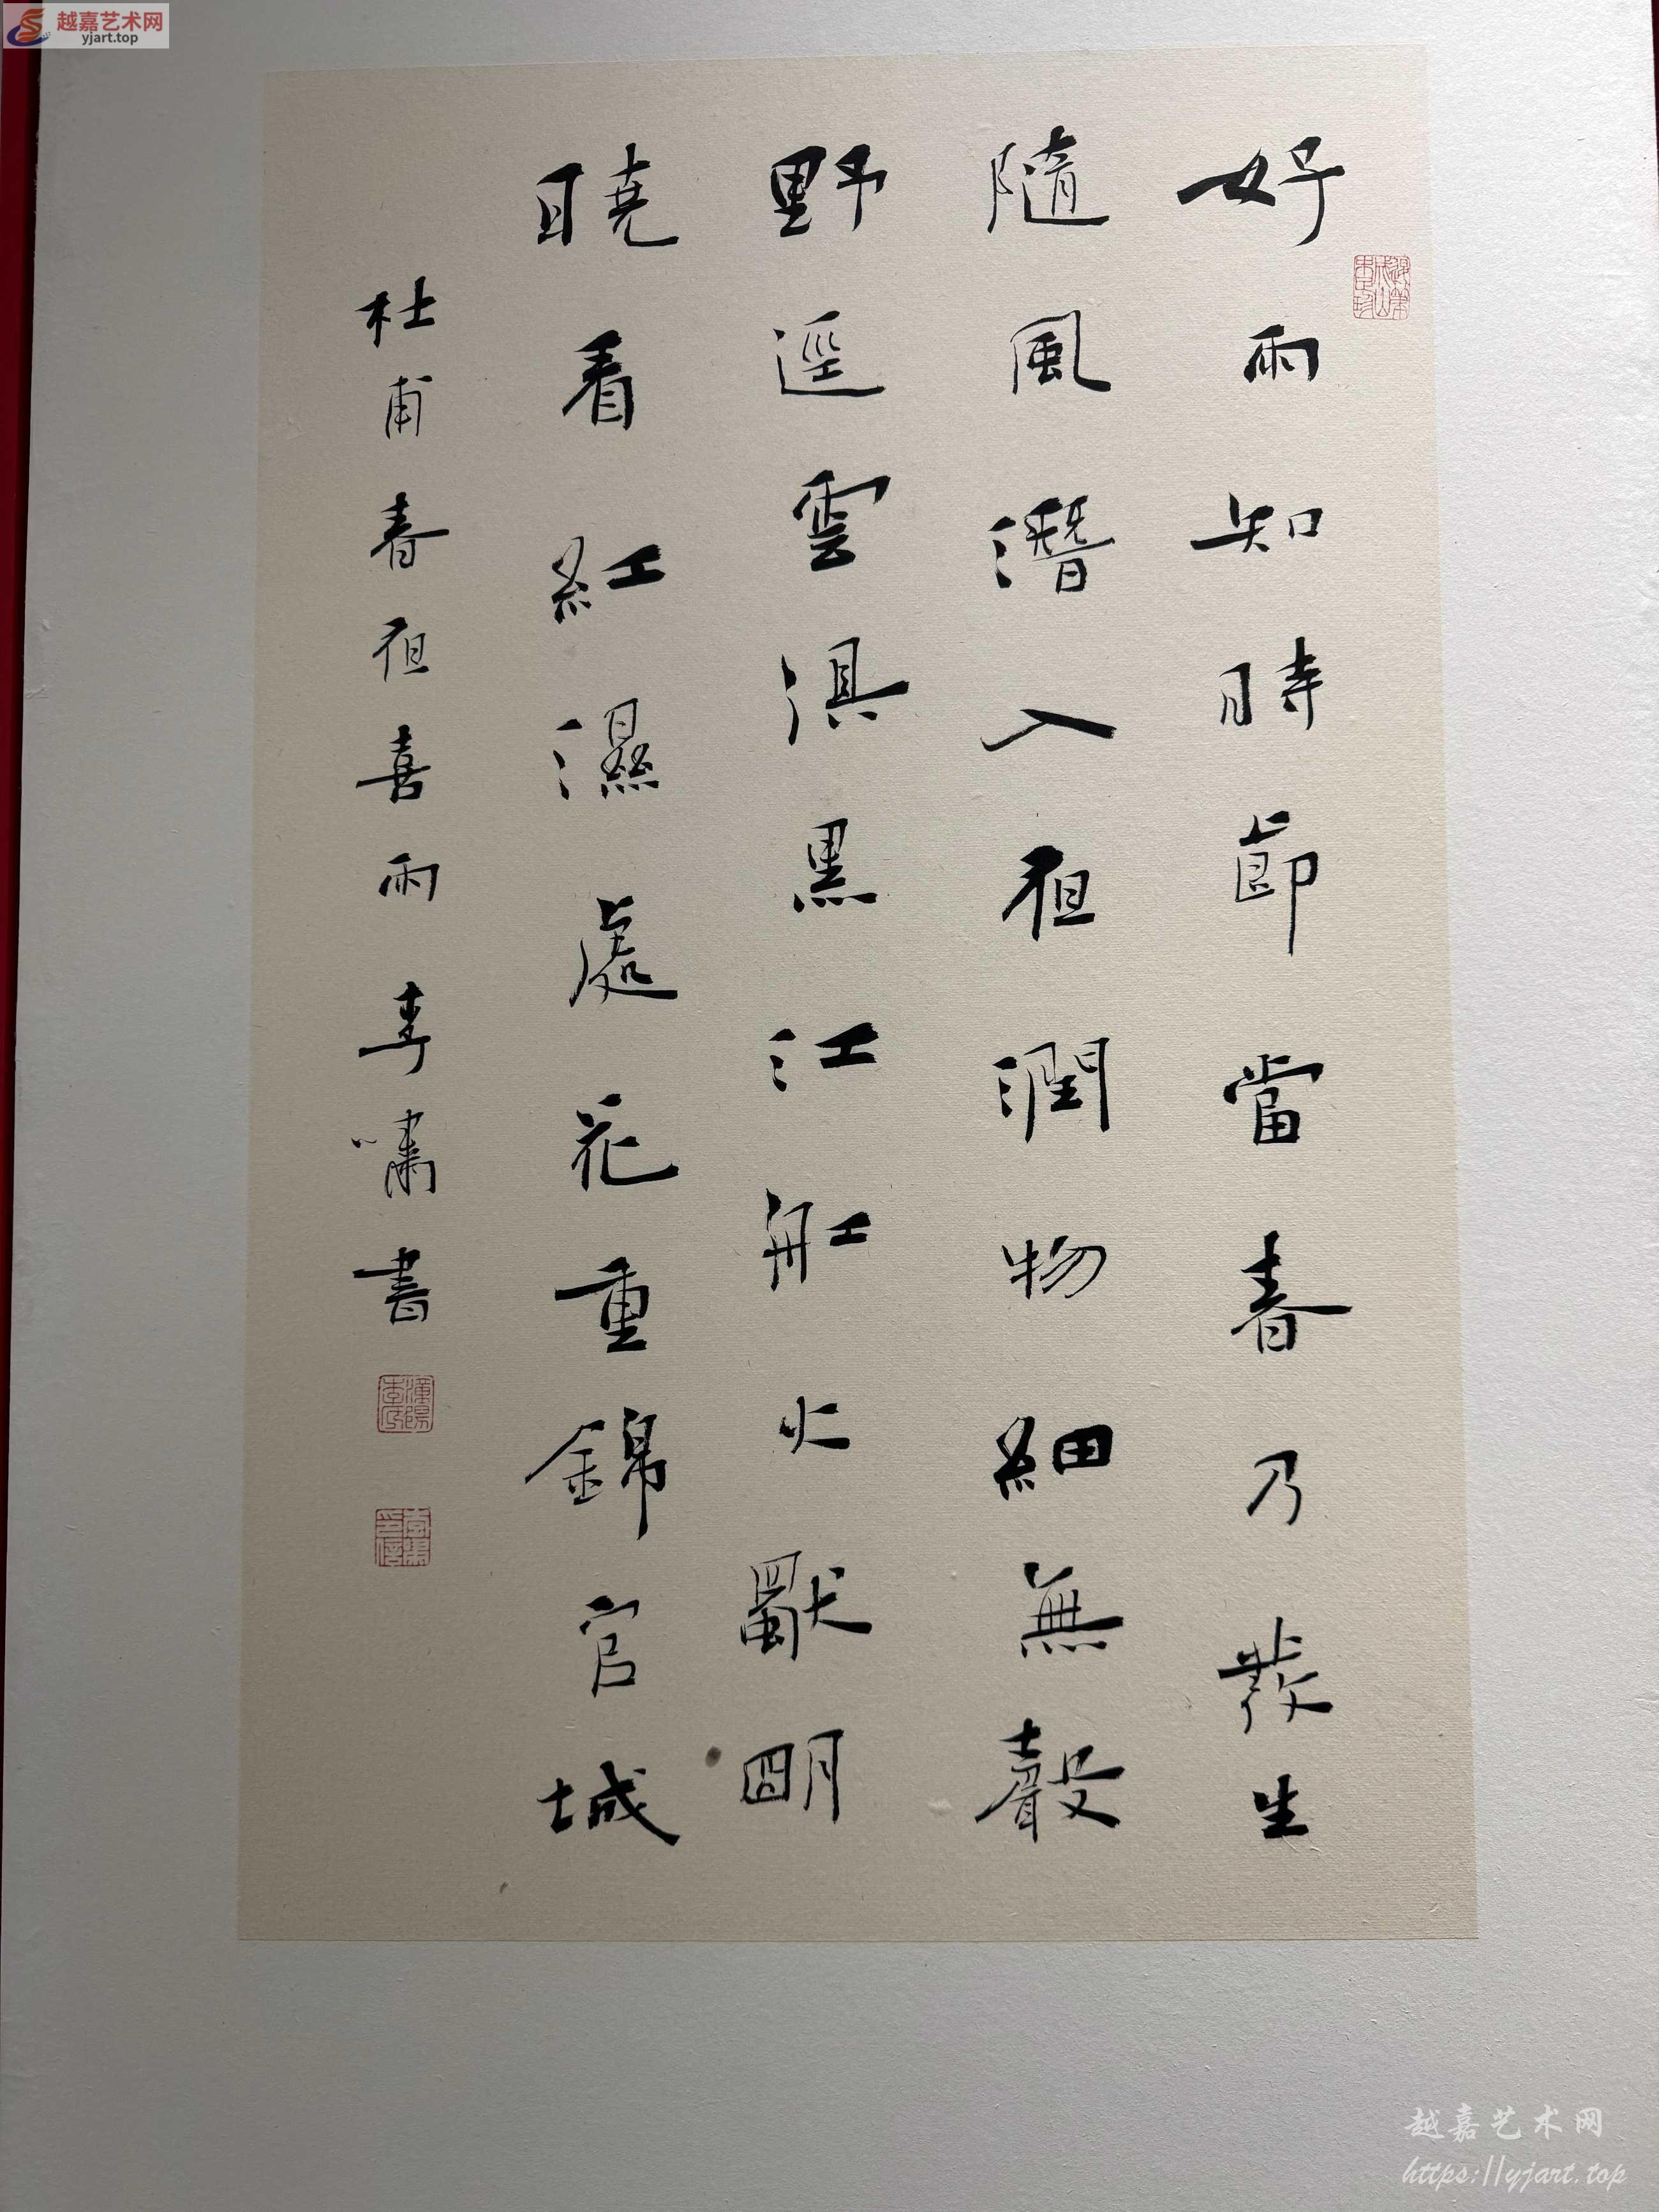 越嘉艺术网
yjart.top
好雨知時節當春乃發生
隨風潛入夜潤物細無聲
野逕雲俱黑江船火獨明
曉看紅濕處花重錦官城
杜甫春夜喜雨 李嘯書
越嘉艺术网
https://yjart.top